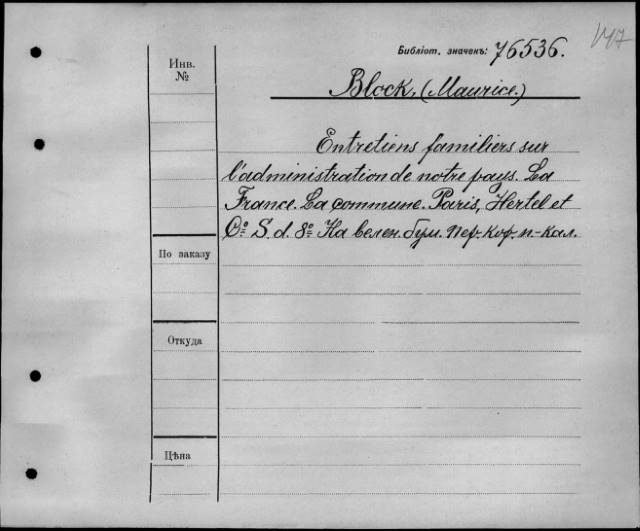 Библіот. значенъ: 76536.
Инв.
№
Block, (Maurice.)
Entretiens familiers sur
l'administration de notre pays. La
France. La commune. Paris, Hertel et
Cº. S. d. 8º. На велен. бум. пер. кор. п-кал.
По заказу
Откуда
Цѣна